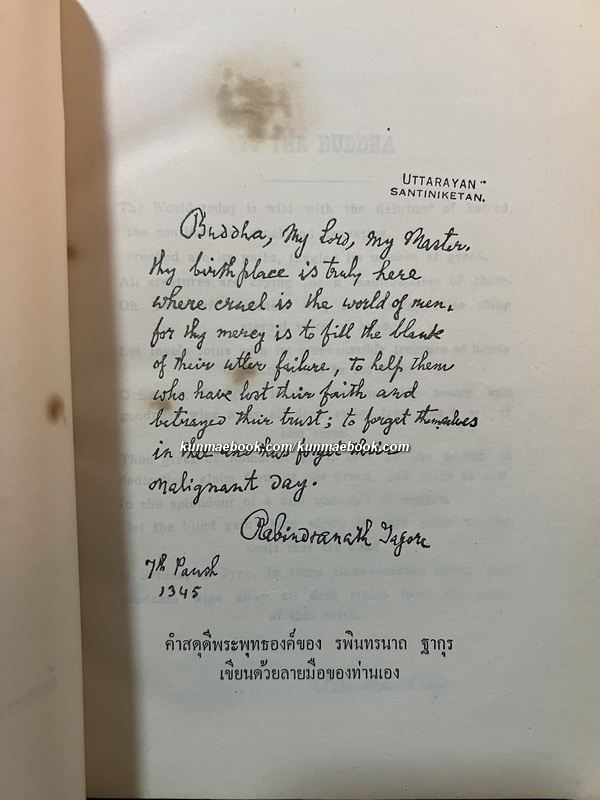 UTTARAYAN
SANTINIKETAN.
Buddha, My Lord, my Master.
thy birthplace is truly here
where cruel is the world of men,
for thy mercy is to fill the blank
of their utter failure, to help them
who have lost their faith and
betrayed their trust; to forget themselves
in thee and thus forget their
kunmaebook.com/kunmaebook.com
malignant day.
Rabindranath Tagore
7th Paush
1345
คำสดุดีพระพุทธองค์ของ รพินทรนาถ ฐากุร
เขียนด้วยลายมือของท่านเอง
TO THE BUDDHA